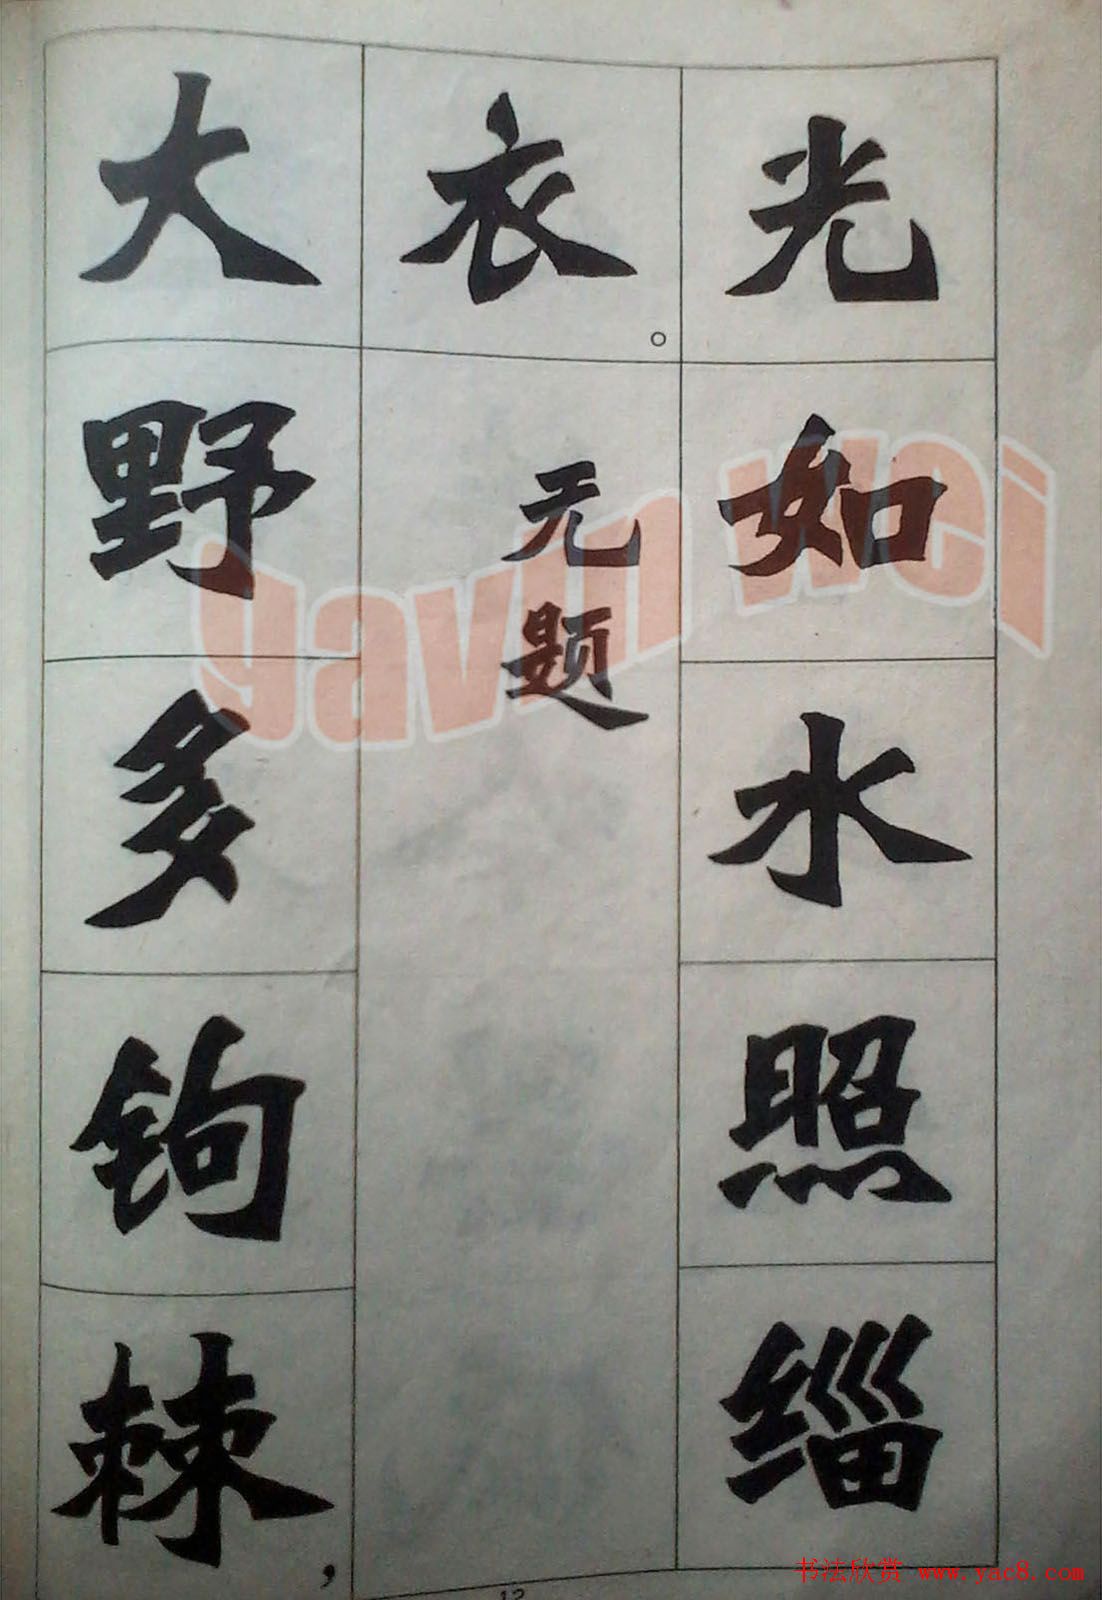 光如水照缁
衣。
无题
大野多钩棘，
yavin wei
12
书法欣赏 www.yac8.com